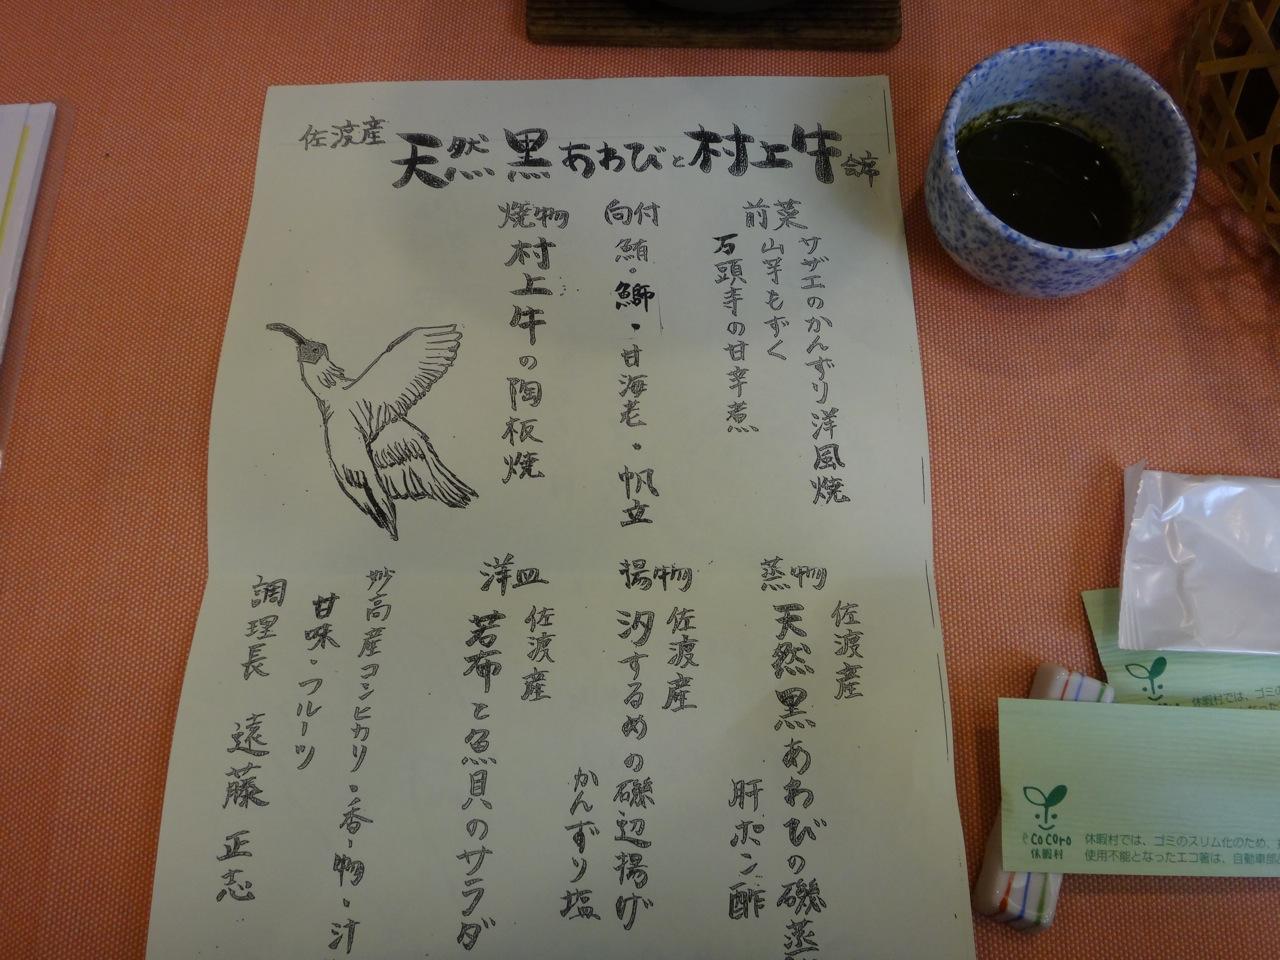 佐渡産 天然黒あわびと村上牛会席
前菜
サザエのかんずり洋風焼
山芋もずく
万頭寺の甘辛煮
向付
鮪・鰤・甘海老・帆立
焼物
村上牛の陶板焼
蒸物
佐渡産
天然黒あわびの磯蒸
肝ポン酢
揚物
佐渡産
汐するめの磯辺揚げ
かんずり塩
洋皿
佐渡産
若布と魚貝のサラダ
妙高産コシヒカリ・香物・汁
甘味・フルーツ
調理長 遠藤正志
休暇村では、ゴミ
ecocoro
休暇村
休暇村では、ゴミのスリム化のため、
使用不能となったエコ箸は、自動車部